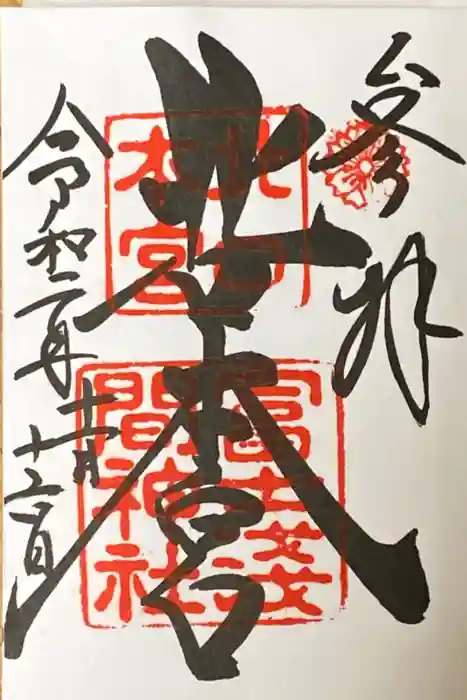 参拝
北口本宮
北口
本宮
冨士浅
間神社
令和二年
十一月
十二日